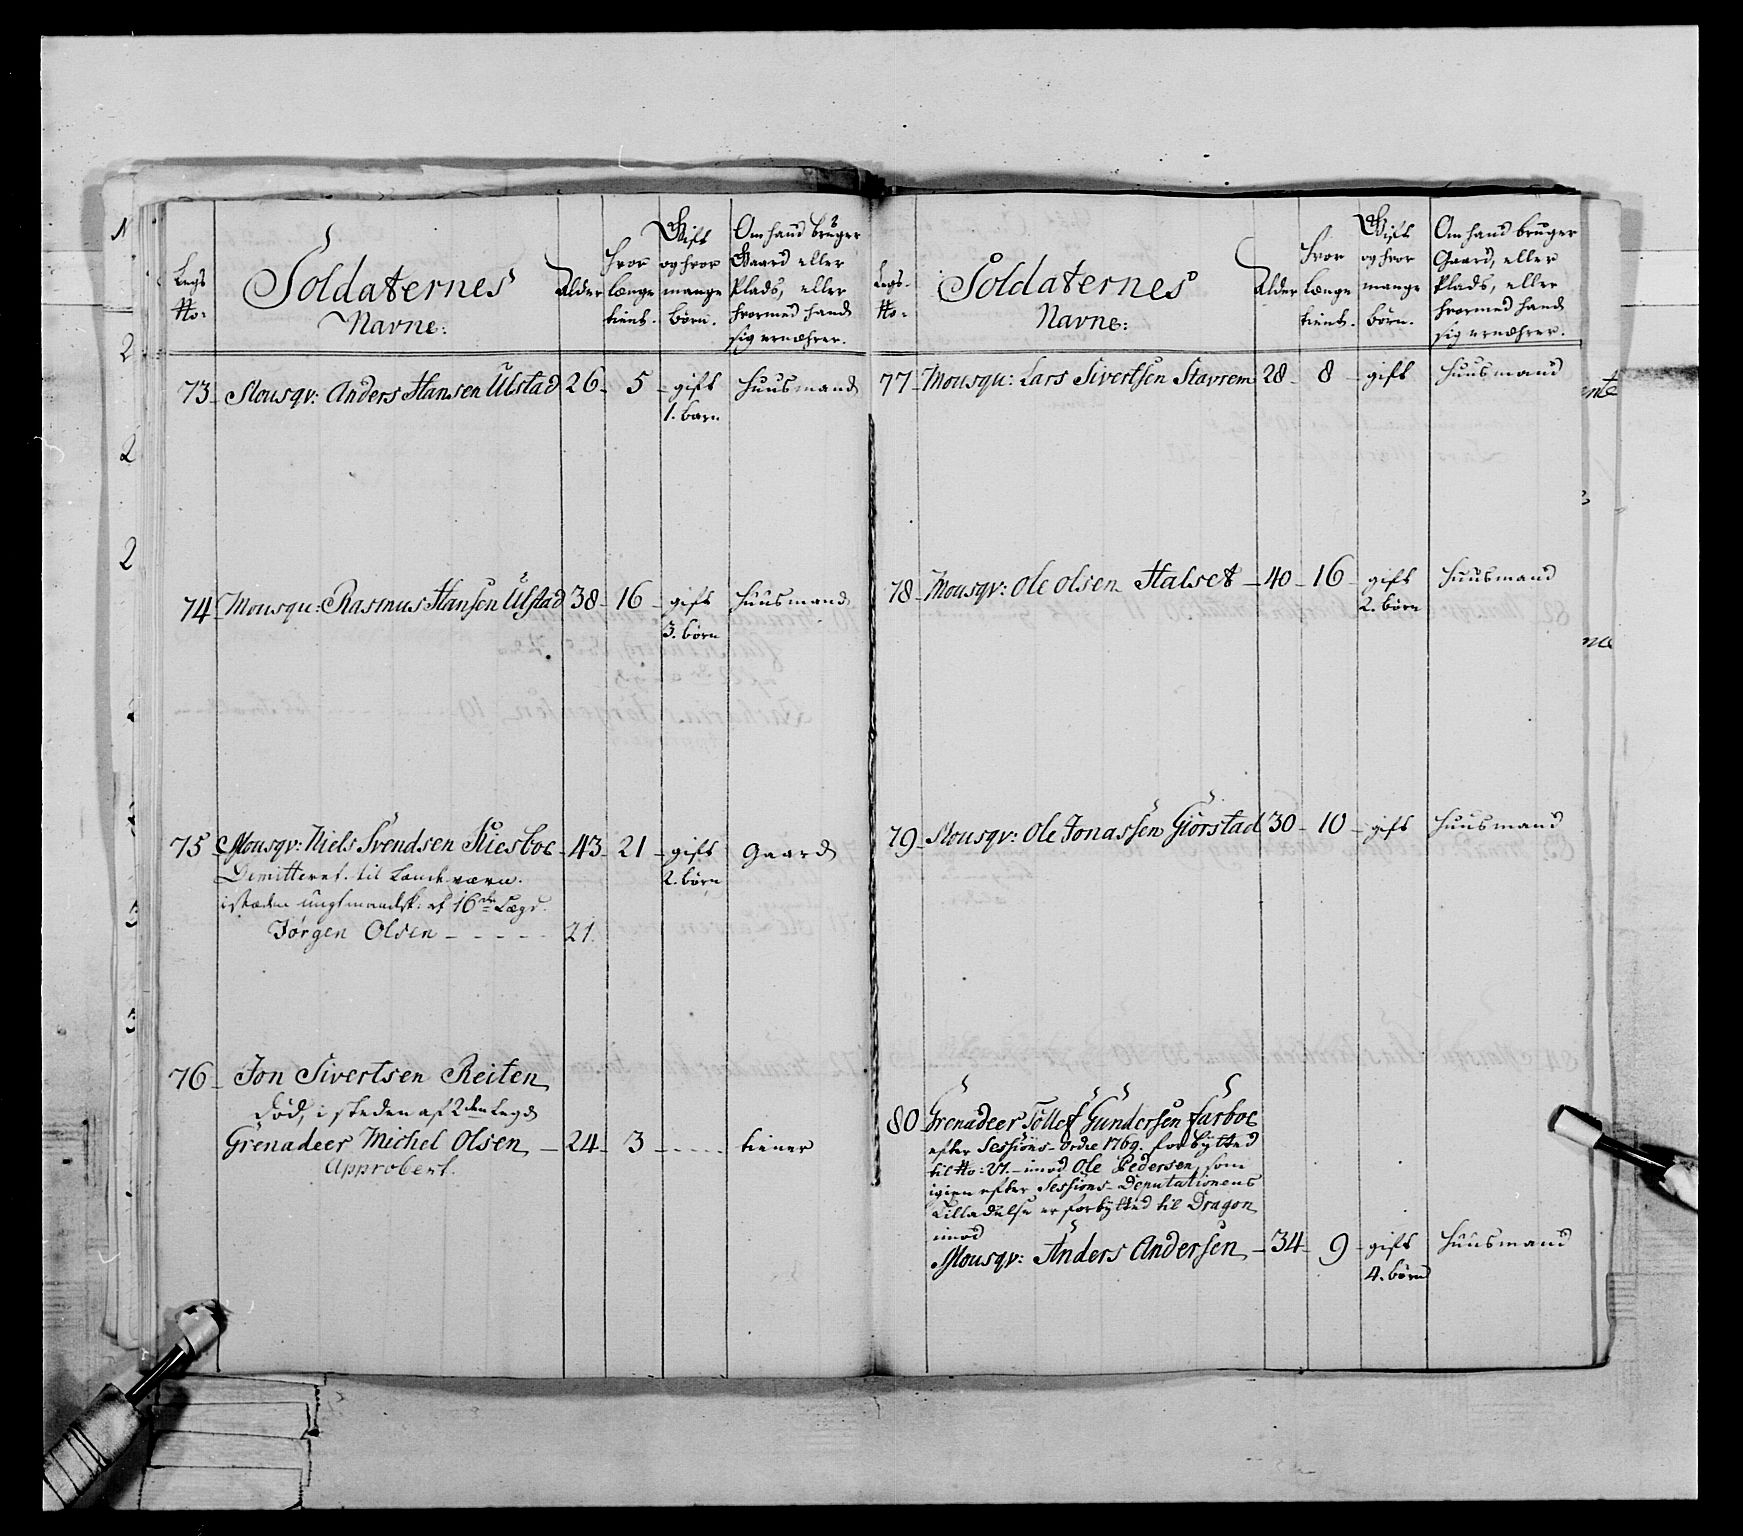 Legs No:
Soldaternes Navne:
Alder
Hvor længe tient.
Gift og hvor mange børn.
Om hand bruger Gaard eller Plads, eller hvormed hand sig ernæhrer.
73 Mousqv: Anders Hansen Ulstad 26 5 gift Huusmand
1. barn
74 Mousqu: Rasmus Hansen Ulstad 38 16 gift Huusmand
3. børn
75 Mousqv: Niels Svendsen Kiesboe 43 21 gift Gaard
Dimitteret til Landværn. 2. børn
istæden ungt mandsk: af 16de Lægd.
Jørgen Olsen 21.
76 Jon Sivertsen Reiten
død, i steden af 2den Legd
Grenadeer Michel Olsen 24 3 tiener
Approbert.
Legs No:
Soldaternes Navne:
Alder
Hvor længe tient.
Gift og hvor mange børn.
Om hand bruger Gaard, eller Plads, eller hvormed hand sig ernæhrer.
77 Mousqu: Lars Sivertsen Stavrem 28 8 gift Huusmand
78 Mousqv: Ole Olsen Halset 40 16 gift Huusmand
2. børn
79 Mousqv: Ole Jonassen Giörstad 30 10 gift Huusmand
80 Grenadeer Tollef Gundersen Farboe
efter Sessions-Ordre 1769. forbytted
til No: 21. imod Ole Pedersen, som
igien efter Sessions-Deputationens
Tilladelse er forbytted til Dragon
imod
Mousqv: Anders Andersen 34 9 gift Huusmand
4. børn